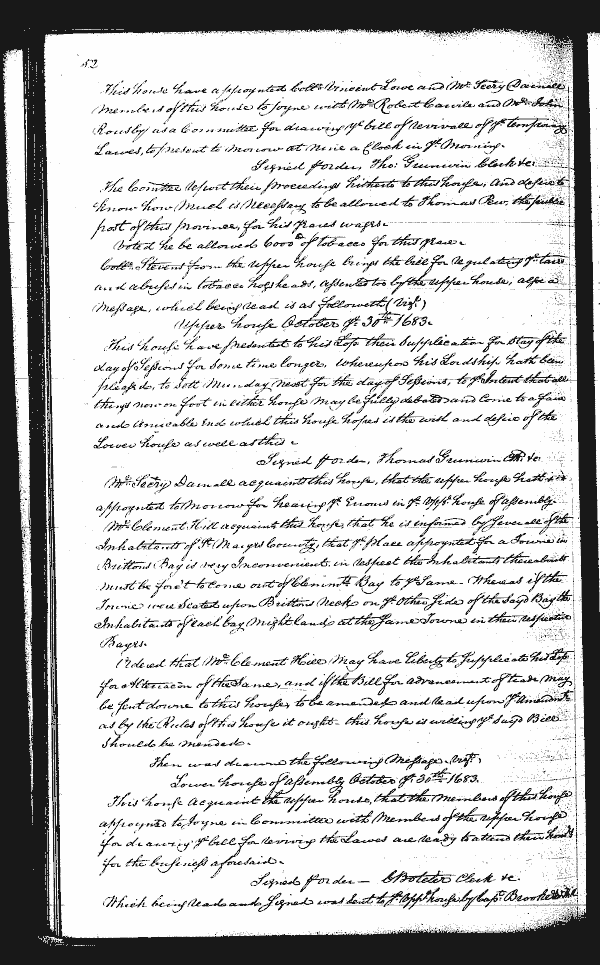 52
This house have appoynted Coll.o Vincent Lowe and Mr. Secry Darnall
Members of this house to Joyne with Mr. Robert Carvile and Mr. John
Rousby as a Committee for drawing ye bill of revivall of ye temporary
Lawes, to present to morrow at nine a Clock in ye Morning.
Signed p order, Tho: Grunwin Clerk &c.
The Comittee report their proceedings hitherto to this house, and desire to
know how much is necessary to be allowed to Thomas Pew, the publique
post of this province, for his years wages.
Voted he be allowed 6000 of tobacco for this year.
Coll.o Stevens from the upper house brings the bill for regulating ye tares
and abuses in tobacco hogsheads, assented to by the upper house, alsoe a
Message, which being read is as followeth (Vizt.)
Upper house October ye 30th 1683.
This house have presented to his Lopp their Supplication for Stay of the
day of Sessions for some time longer, whereupon his Lordship hath been
pleased, to sett Munday next for the day of Sessions, to ye Intent that all
things now on foot in either house may be fully debated and come to a faire
and amicable End which this house hopes is the wish and desire of the
Lower house as well as this.
Signed p order, Thomas Grunwin Clk. &c.
Mr. Secry Darnall acquaints this house, that the upper house hath
appoynted to Morrow for hearing ye Errours in ye uppr. house of assembly.
Mr. Clement Hill acquaints this house, that he is informed by severall of the
Inhabitants of St. Maryes County, that ye place appoynted for a Towne in
Brittons Bay is very Inconvenient, in respect the Inhabitants thereabouts
must be forc't to come out of Clements Bay to ye Same. Whereas if the
Towne were seated upon Brittons Neck on ye other side of the sayd Bay the
Inhabitants of each bay might land at the same Towne in their respective
Bayes.
Ordered that Mr. Clement Hill may have liberty to supplicate his Lopp
for Alteracon of the Same, and if the Bill for advancement of trade may
be sent downe to this house, to be amended and read upon ye amendmts
as by the Rules of this house it ought this house is willing ye sayd Bill
should be mended.
Then was drawne the following Message. vizt.
Lower house of assembly October ye 30th 1683.
This house acquaint the upper house, that the members of this house
appoynted to Joyne in Committee with Members of the upper house
for drawing ye bill for reviving the Lawes are ready to attend their hours
for the business aforesaid.
Signed p order — Clerk &c.
Which being read and Signed was sent to ye uppr. house by Capt. Brooke